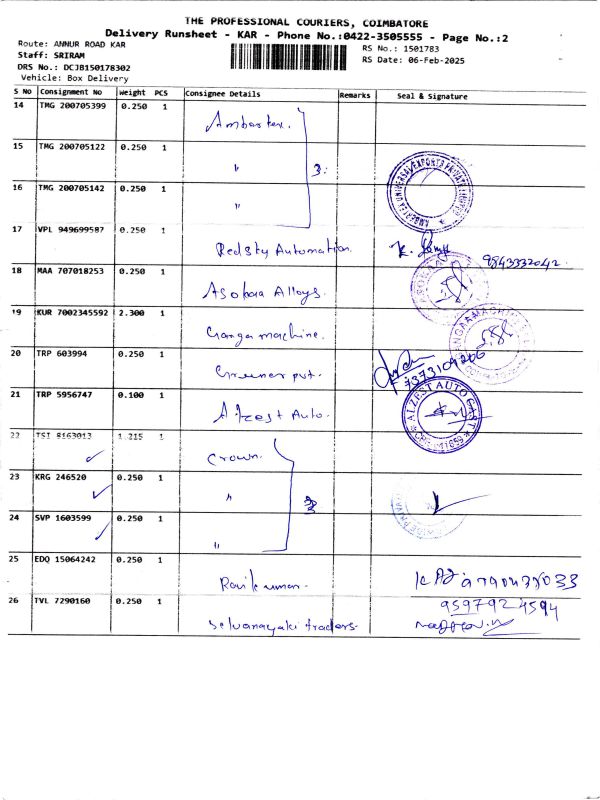 THE PROFESSIONAL COURIERS, COIMBATORE
Delivery Runsheet - KAR - Phone No.:0422-3505555 - Page No.:2
Route: ANNUR ROAD KAR
Staff: SRIRAM
DRS No.: DCJB150178302
Vehicle: Box Delivery
RS No.: 1501783
RS Date: 06-Feb-2025
S NO Consignment No Weight PCS Consignee Details Remarks Seal & Signature
14 TMG 200705399 0.250 1 Ambertex.
15 TMG 200705122 0.250 1 " 3:
16 TMG 200705142 0.250 1 "
17 VPL 949699587 0.250 1 Redsky Automation. 9843332042
18 MAA 707018253 0.250 1 Asokaa Alloys.
19 KUR 7002345592 2.300 1 Ganga machine.
20 TRP 603994 0.250 1 Greener pvt. 7373109206
21 TRP 5956747 0.100 1 Alzest Auto. ALZEST AUTO CAST
22 TSI 8163013 1.215 1 Crown.
23 KRG 246520 0.250 1 "
24 SVP 1603599 0.250 1 "
25 EDQ 15064242 0.250 1 Ravikumar.
26 TVL 7290160 0.250 1 Selvanayaki traders. 9597924594